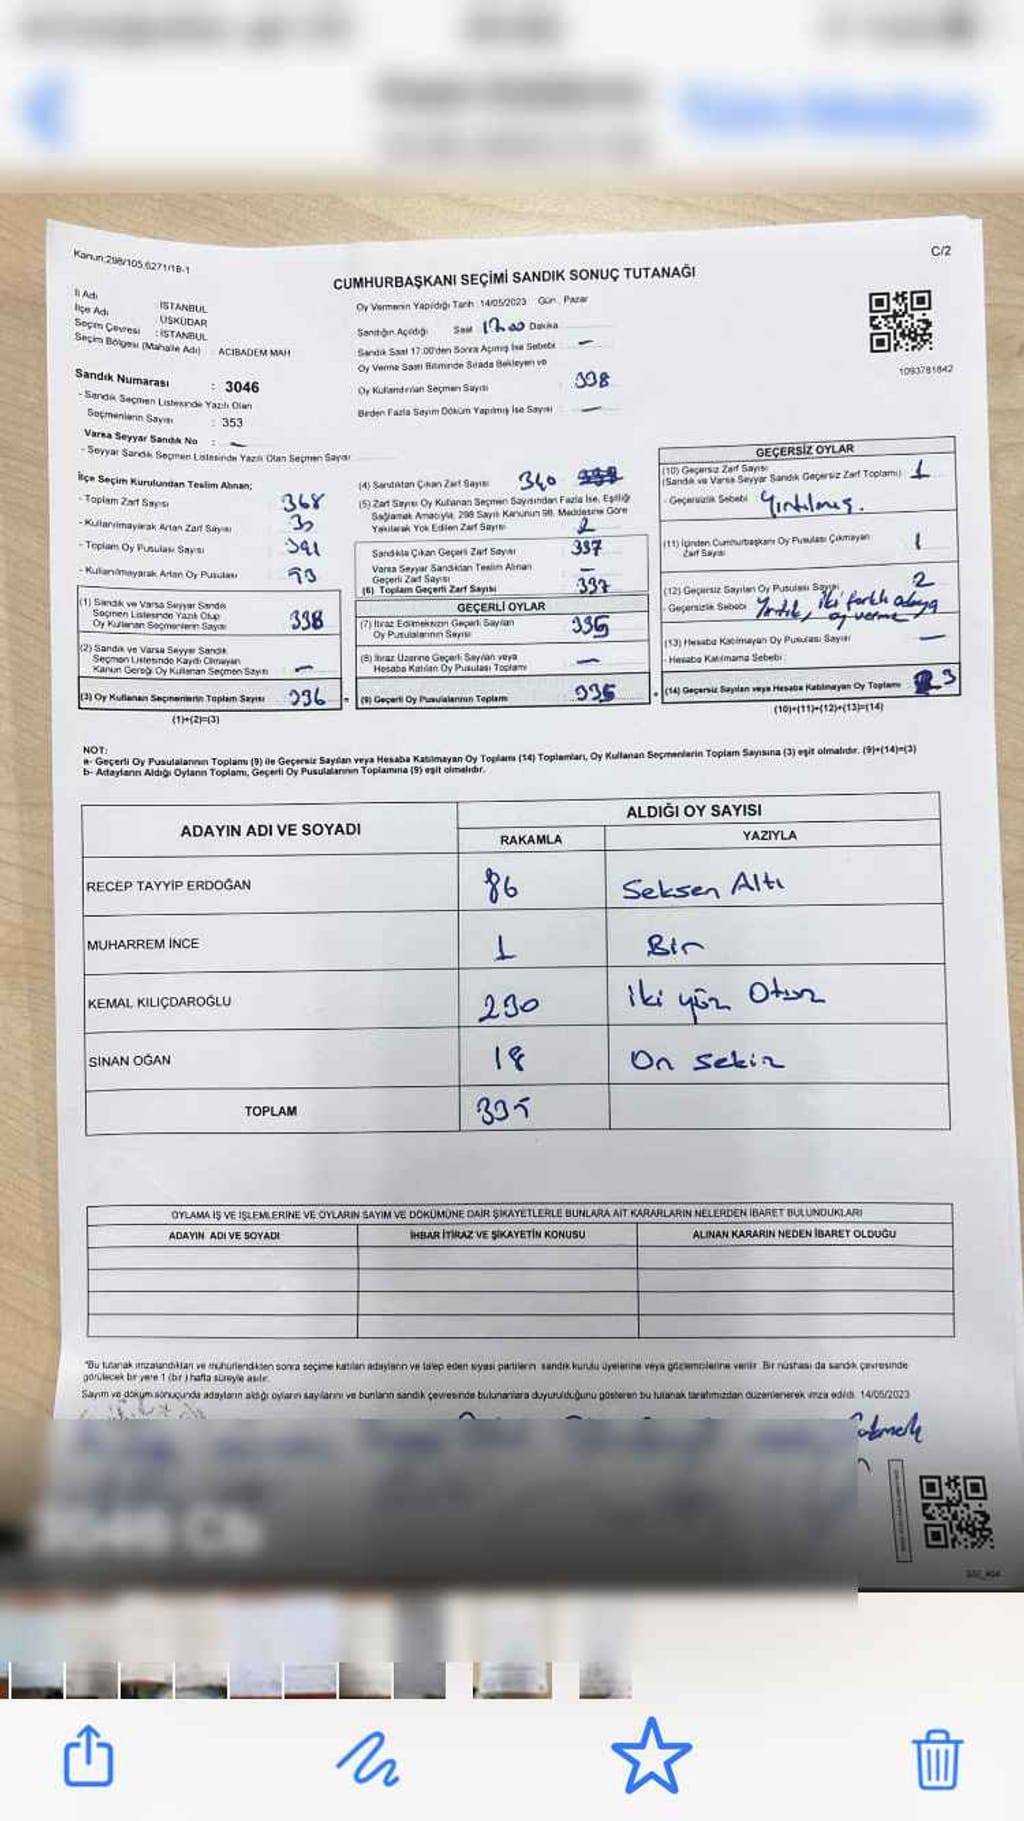 Kanun:298/105,6271/18-1
C/2
CUMHURBAŞKANI SEÇİMİ SANDIK SONUÇ TUTANAĞI
İl Adı : İSTANBUL
İlçe Adı : ÜSKÜDAR
Seçim Çevresi : İSTANBUL
Seçim Bölgesi (Mahalle Adı) : ACIBADEM MAH
Sandık Numarası : 3046
- Sandık Seçmen Listesinde Yazılı Olan
Seçmenlerin Sayısı : 353
Varsa Seyyar Sandık No : -
- Seyyar Sandık Seçmen Listesinde Yazılı Olan Seçmen Sayısı
Oy Vermenin Yapıldığı Tarih : 14/05/2023 Gün : Pazar
Sandığın Açıldığı Saat 17:00 Dakika
Sandık Saat 17.00'den Sonra Açımış İse Sebebi : -
Oy Verme Saati Bitiminde Sırada Bekleyen ve
Oy Kullandırılan Seçmen Sayısı : 338
Birden Fazla Sayım Döküm Yapılmış İse Sayısı : -
1093781842
İlçe Seçim Kurulundan Teslim Alınan;
- Toplam Zarf Sayısı 368
- Kullanılmayarak Artan Zarf Sayısı
- Toplam Oy Pusulası Sayısı 391
- Kullanılmayarak Artan Oy Pusulası
(1) Sandık ve Varsa Seyyar Sandık
Seçmen Listesinde Yazılı Olup
Oy Kullanan Seçmenlerin Sayısı 338
(2) Sandık ve Varsa Seyyar Sandık
Seçmen Listesinde Kaydı Olmayan
Kanun Gereği Oy Kullanan Seçmen Sayısı -
(3) Oy Kullanan Seçmenlerin Toplam Sayısı 336 =
(1)+(2)=(3)
(4) Sandıktan Çıkan Zarf Sayısı 340
(5) Zarf Sayısı Oy Kullanan Seçmen Sayısından Fazla İse, Eşitliği
Sağlamak Amacıyla, 298 Sayılı Kanunun 98. Maddesine Göre
Yakılarak Yok Edilen Zarf Sayısı 2
Sandıkta Çıkan Geçerli Zarf Sayısı 337
Varsa Seyyar Sandıktan Teslim Alınan
Geçerli Zarf Sayısı -
(6) Toplam Geçerli Zarf Sayısı 337
GEÇERLİ OYLAR
(7) İtiraz Edilmeksizin Geçerli Sayılan
Oy Pusulalarının Sayısı 335
(8) İtiraz Üzerine Geçerli Sayılan veya
Hesaba Katılan Oy Pusulası Toplamı -
(9) Geçerli Oy Pusulalarının Toplamı 335
GEÇERSİZ OYLAR
(10) Geçersiz Zarf Sayısı
(Sandık ve Varsa Seyyar Sandık Geçersiz Zarf Toplamı) 1
- Geçersizlik Sebebi Yırtılmış.
(11) İçinden Cumhurbaşkanı Oy Pusulası Çıkmayan
Zarf Sayısı 1
(12) Geçersiz Sayılan Oy Pusulası Sayısı 2
- Geçersizlik Sebebi Yırtık, iki farklı adaya
oy verme
(13) Hesaba Katılmayan Oy Pusulası Sayısı -
- Hesaba Katılmama Sebebi :
(14) Geçersiz Sayılan veya Hesaba Katılmayan Oy Toplamı 3
(10)+(11)+(12)+(13)=(14)
NOT:
a- Geçerli Oy Pusulalarının Toplamı (9) ile Geçersiz Sayılan veya Hesaba Katılmayan Oy Toplamı (14) Toplamları, Oy Kullanan Seçmenlerin Toplam Sayısına (3) eşit olmalıdır. (9)+(14)=(3)
b- Adayların Aldığı Oyların Toplamı, Geçerli Oy Pusulalarının Toplamına (9) eşit olmalıdır.
ADAYIN ADI VE SOYADI
ALDIĞI OY SAYISI
RAKAMLA YAZIYLA
RECEP TAYYİP ERDOĞAN 86 Seksen Altı
MUHARREM İNCE 1 Bir
KEMAL KILIÇDAROĞLU 230 iki yüz Otuz
SİNAN OĞAN 18 On sekiz
TOPLAM 335
OYLAMA İŞ VE İŞLEMLERİNE VE OYLARIN SAYIM VE DÖKÜMÜNE DAİR ŞİKAYETLERLE BUNLARA AİT KARARLARIN NELERDEN İBARET BULUNDUKLARI
ADAYIN ADI VE SOYADI İHBAR İTİRAZ VE ŞİKAYETİN KONUSU ALINAN KARARIN NEDEN İBARET OLDUĞU
"Bu tutanak imzalandıktan ve mühürlendikten sonra seçime katılan adayların ve talep eden siyasi partilerin sandık kurulu üyelerine veya gözlemcilerine verilir. Bir nüshası da sandık çevresinde
görülecek bir yere 1 (bir) hafta süreyle asılır.
Sayım ve döküm sonucunda adayların aldığı oyların sayılarını ve bunların sandık çevresinde bulunanlara duyurulduğunu gösteren bu tutanak tarafımızdan düzenlenerek imza edildi. 14/05/2023